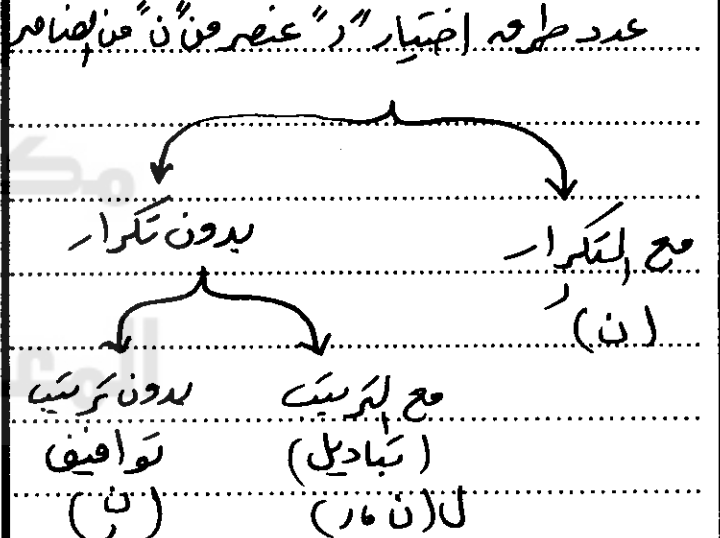 عدد طرق اختيار "ر" عنصر من "ن" من العناصر
مع التكرار
(ن)ر
بدون تكرار
مع الترتيب
(تباديل)
ل(ن،ر)
بدون ترتيب
توافيق
(ن ر)